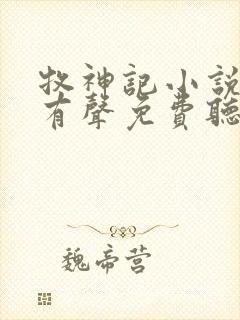 牧神記小說
有聲免費聽
魏帝营